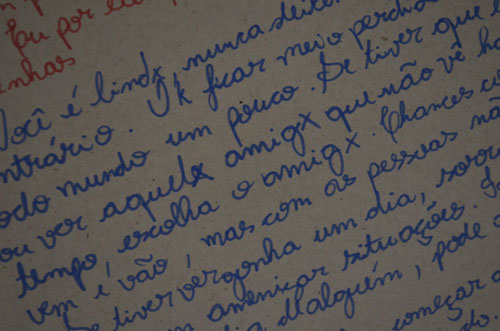 por
inhas
Você é lindx, nunca deixe
contrário. Ok ficar meio perdid
todo mundo um pouco. Se tiver que e
ou ver aquelx amigx que não vê há
tempo, escolha o amigx. Chances
vem e vão, mas com as pessoas nã
Se tiver vergonha um dia, sorri
amenizar situações.
dia d'alguém, pode
começar a